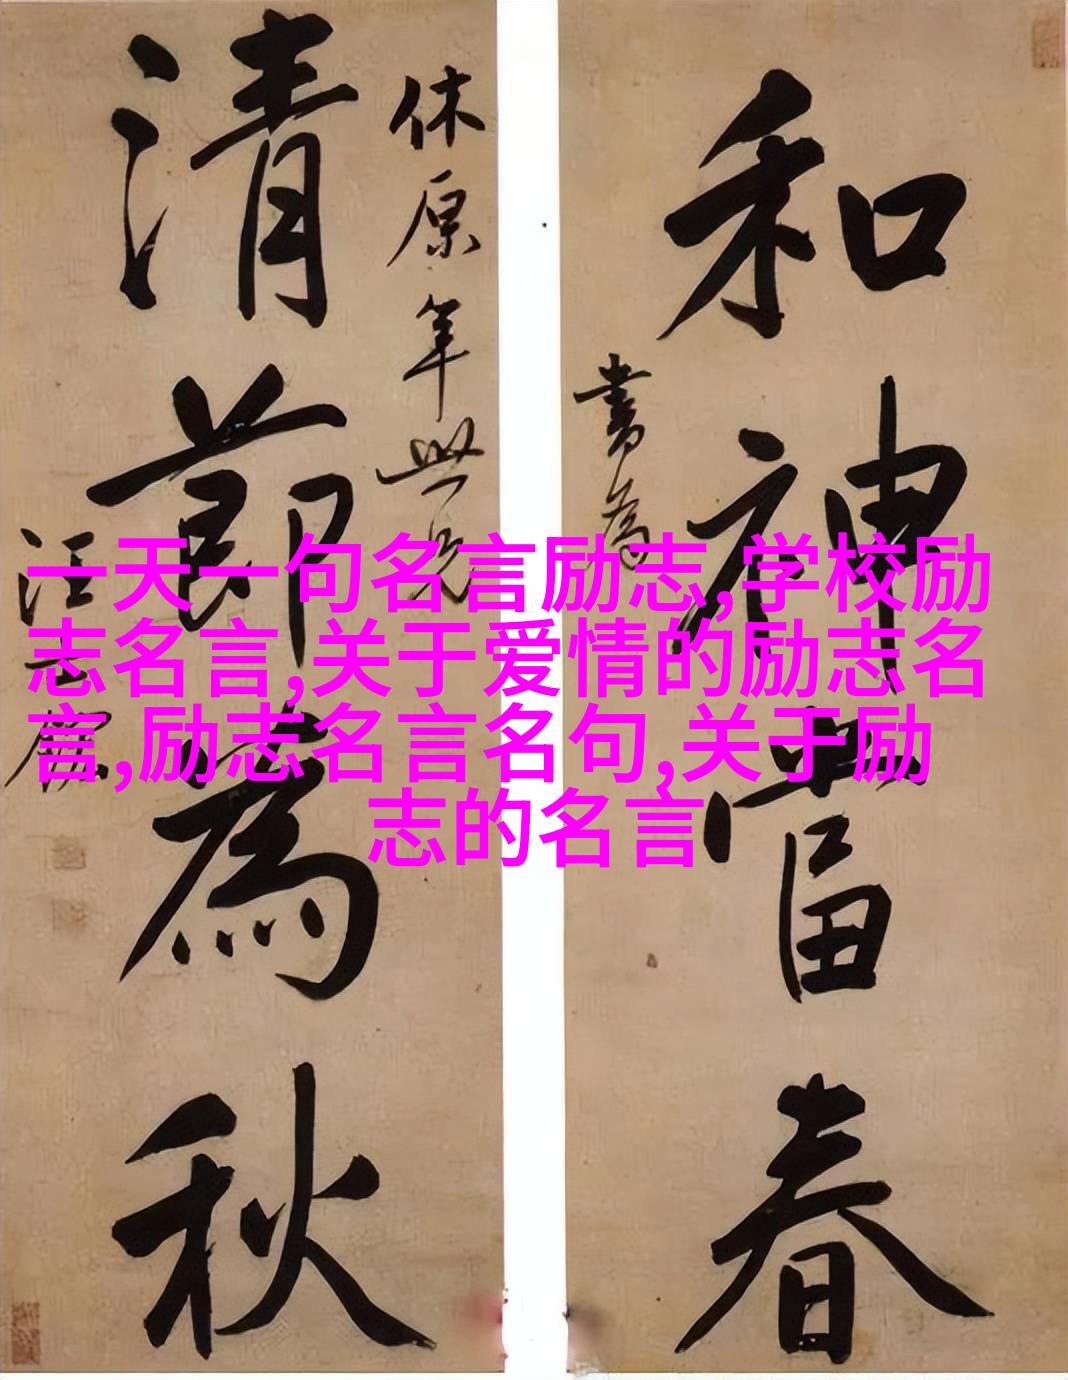 和神當春
書為
休原年世兄
清節為秋
汪士鋐
一天一句名言励志,学校励
志名言,关于爱情的励志名
言,励志名言名句,关于励
志的名言